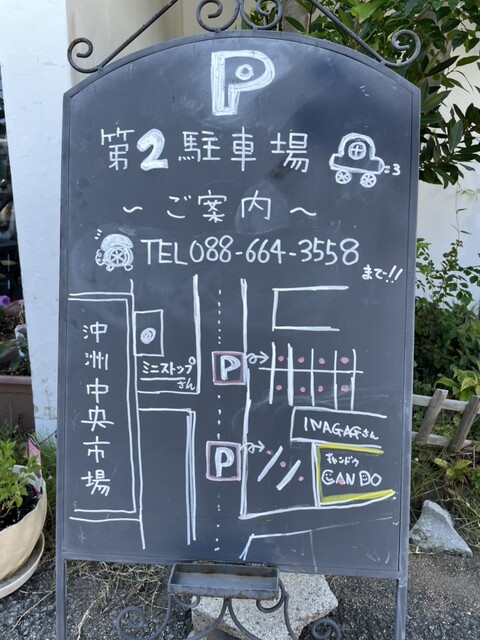 P
第2駐車場
～ご案内～
TEL 088-664-3558
まで!!
沖洲中央市場
ミニストップ
さん
P
P
INAGAFさん
キャンドゥ
CAN DO